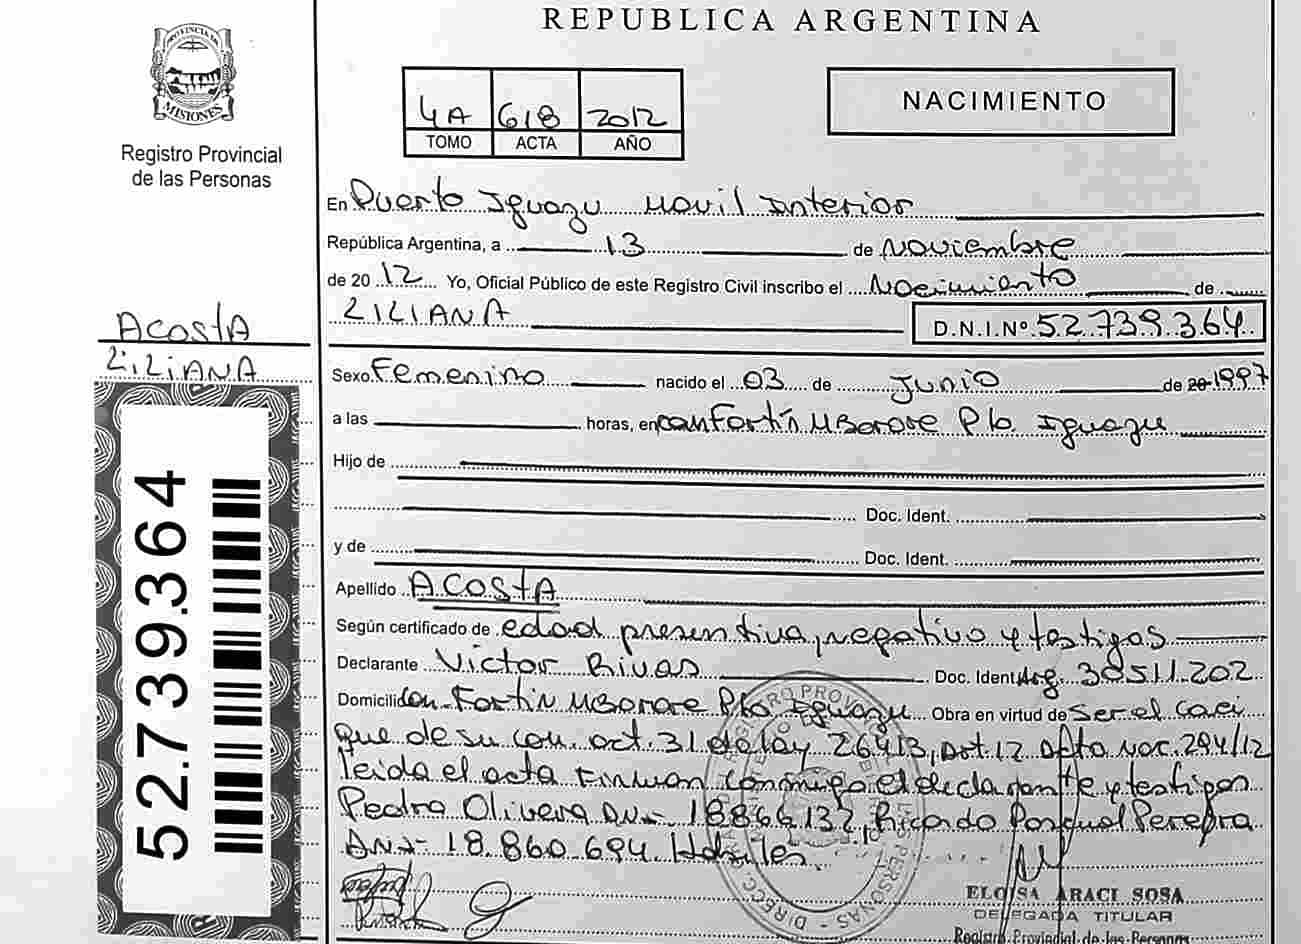 REPUBLICA ARGENTINA
PROVINCIA DE
MISIONES
Registro Provincial
de las Personas
4A 618 2012
TOMO ACTA AÑO
NACIMIENTO
En Puerto Iguazu Movil Interior
República Argentina, a 13 de Noviembre
de 20 12 Yo, Oficial Público de este Registro Civil inscribo el Nacimiento de
LILIANA D.N.I.Nº 52.739.364
ACOSTA
LILIANA
52.739.364
Sexo Femenino nacido el 03 de Junio de 20 1997
a las horas, en Fortín MBorore Pto. Iguazu
Hijo de
Doc. Ident.
y de Doc. Ident.
Apellido ACOSTA
Según certificado de edad presentiva, negativo y testigos
Declarante Victor Rivas Doc. Ident. Arg. 30511.202
Domicilio Fortín MBorore Pto Iguazu Obra en virtud de Ser el Caci
que de su con. act. 31 de ley 26413, art. 12 Dcto Nac. 294/12
leida el acta Firman conmigo el declarante y testigos
Pedro Olivera 18866132, Ricardo Pereyra
18.860.694. Habiles
ELOISA ARACI SOSA
DELEGADA TITULAR
Registro Provincial de las Personas